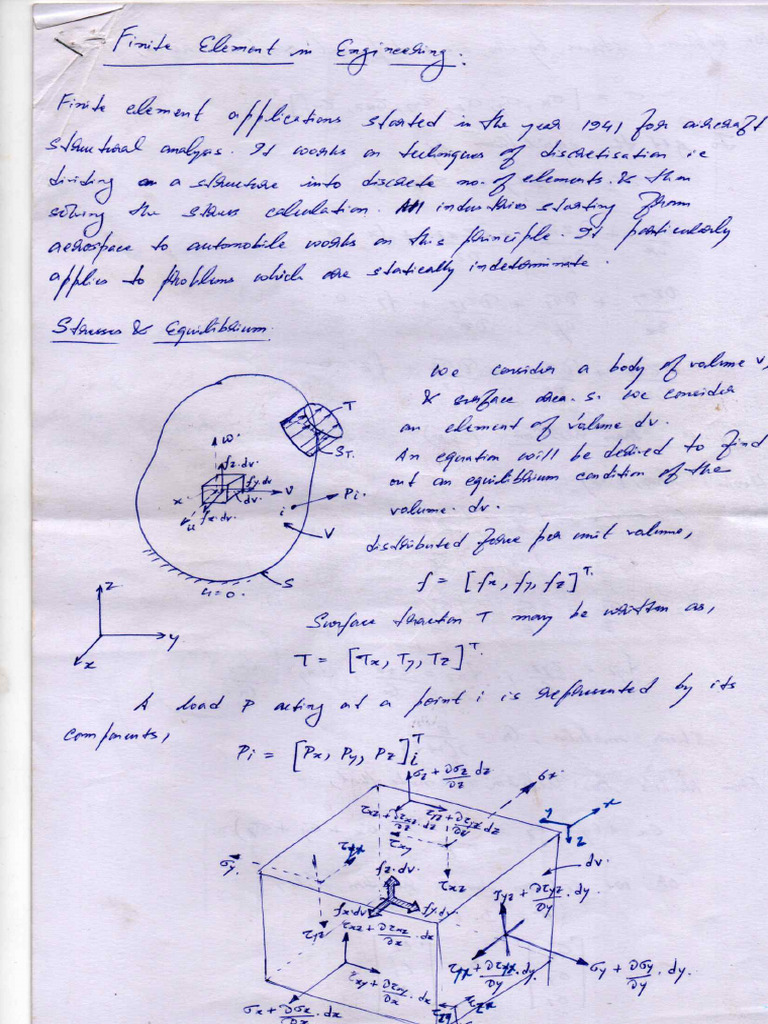 Finite Element in Engineering.
Finite element applications started in the year 1941 for aircraft
structural analysis. It works on techniques of discretisation i.e
dividing a structure into discrete no. of elements & then
solving the stress calculation. All industries starting from
aerospace to automobile works on this principle. It particularly
applies to problems which are statically indeterminate.
Stresses & Equilibrium.
We consider a body of volume V,
& surface area. S. We consider
an element of volume dv.
An equation will be desired to find
out an equilibrium condition of the
volume. dv.
distributed force per unit volume,
f = [fx, fy, fz]^T.
Surface traction T may be written as,
T = [Tx, Ty, Tz]^T.
A load P acting at a point i is represented by its
components,
Pi = [Px, Py, Pz]_i^T
T
ST.
w.
fz.dv.
fy.dv
x
v
dv.
u
fx.dv.
i
Pi.
V
S
u=0.
z
y
x
σz + ∂σz/∂z dz
σx.
τxy
τxz
x
z
dv
σy.
fz.dv.
fx.dv
fy.dv.
τyz + ∂τyz/∂y . dy.
τxz + ∂τxz/∂x . dx
τxy + ∂τxy/∂x . dx
σy + ∂σy/∂y . dy.
σx + ∂σx/∂x . dx